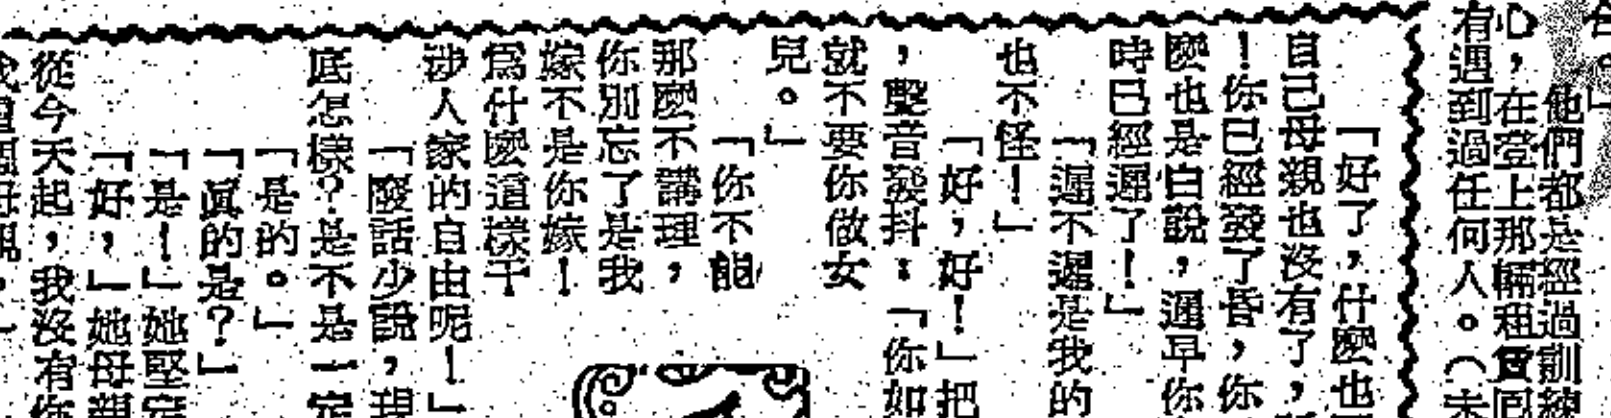 台。」
他們都是經過訓練
心，在登上那輛租賃回
有遇到過任何人。（未
「好了，什麽也
自己母親也沒有了，
！你已經發了昏，你
麽也是白說，遲早你
時已經遲了！」
「遲不遲是我的
也不怪！」
「好，好！」把
，聲音發抖：「你如
就不要你做女
兒。」
「你不能
那麽不講理，
你別忘了是我
嫁不是你嫁！
爲什麽這樣干
涉人家的自由呢！」
「廢話少說，現
底怎樣？是不是一定
「是的。」
「眞的是？」
「是！」她堅定
「好，」她母親
從今天起，我沒有你